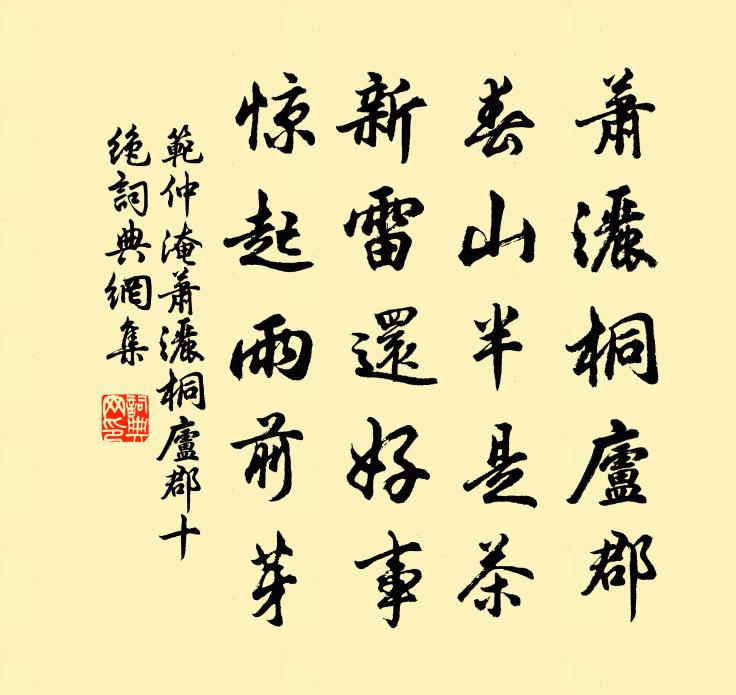 蕭灑桐廬郡
春山半是茶
新雷還好事
惊起雨前芽
範仲淹蕭灑桐廬郡十
絶詞典網集
詞典
网印